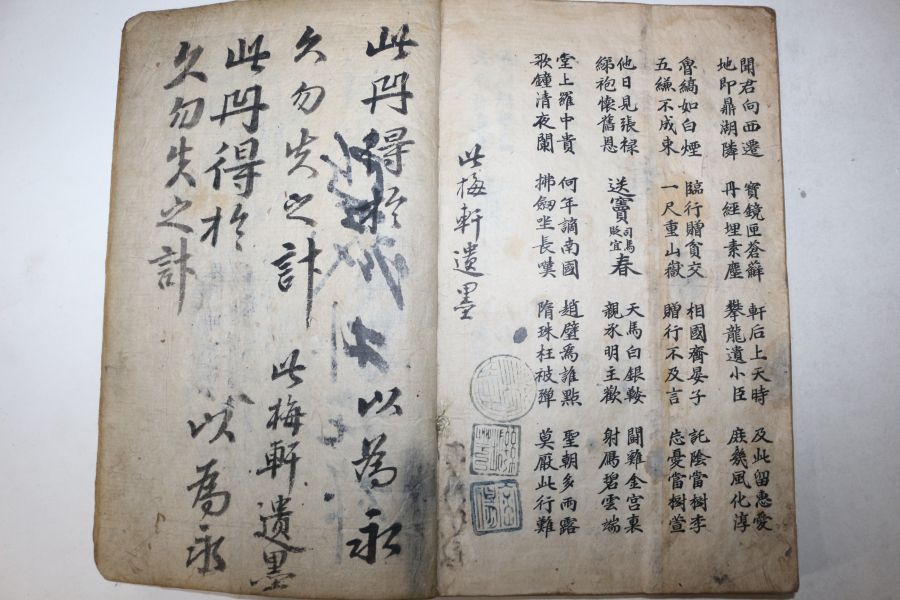 聞君向西遷 寶鏡匣蒼蘚 軒后上天時 及此留惠愛
地即鼎湖隣 丹經埋素塵 攀龍遺小臣 庶幾風化淳
魯縞如白煙 臨行贈貧交 相國齊晏子 託陰當樹李
五縑不成束 一尺重山嶽 贈行不及言 忘憂當樹萱
他日見張祿 送竇司馬貶宜春 天馬白銀鞍 鬪雞金宮裏
綈袍懷舊恩 親承明主歡 射鴈碧雲端
堂上羅中貴 何年謫南國 趙璧爲誰點 聖朝多雨露
歌鐘清夜闌 拂劒坐長嘆 隋珠枉被彈 莫厭此行難
此梅軒遺墨
此冊得於 以為永
久勿失之計 此梅軒遺墨
此冊得於 以為永
久勿失之計